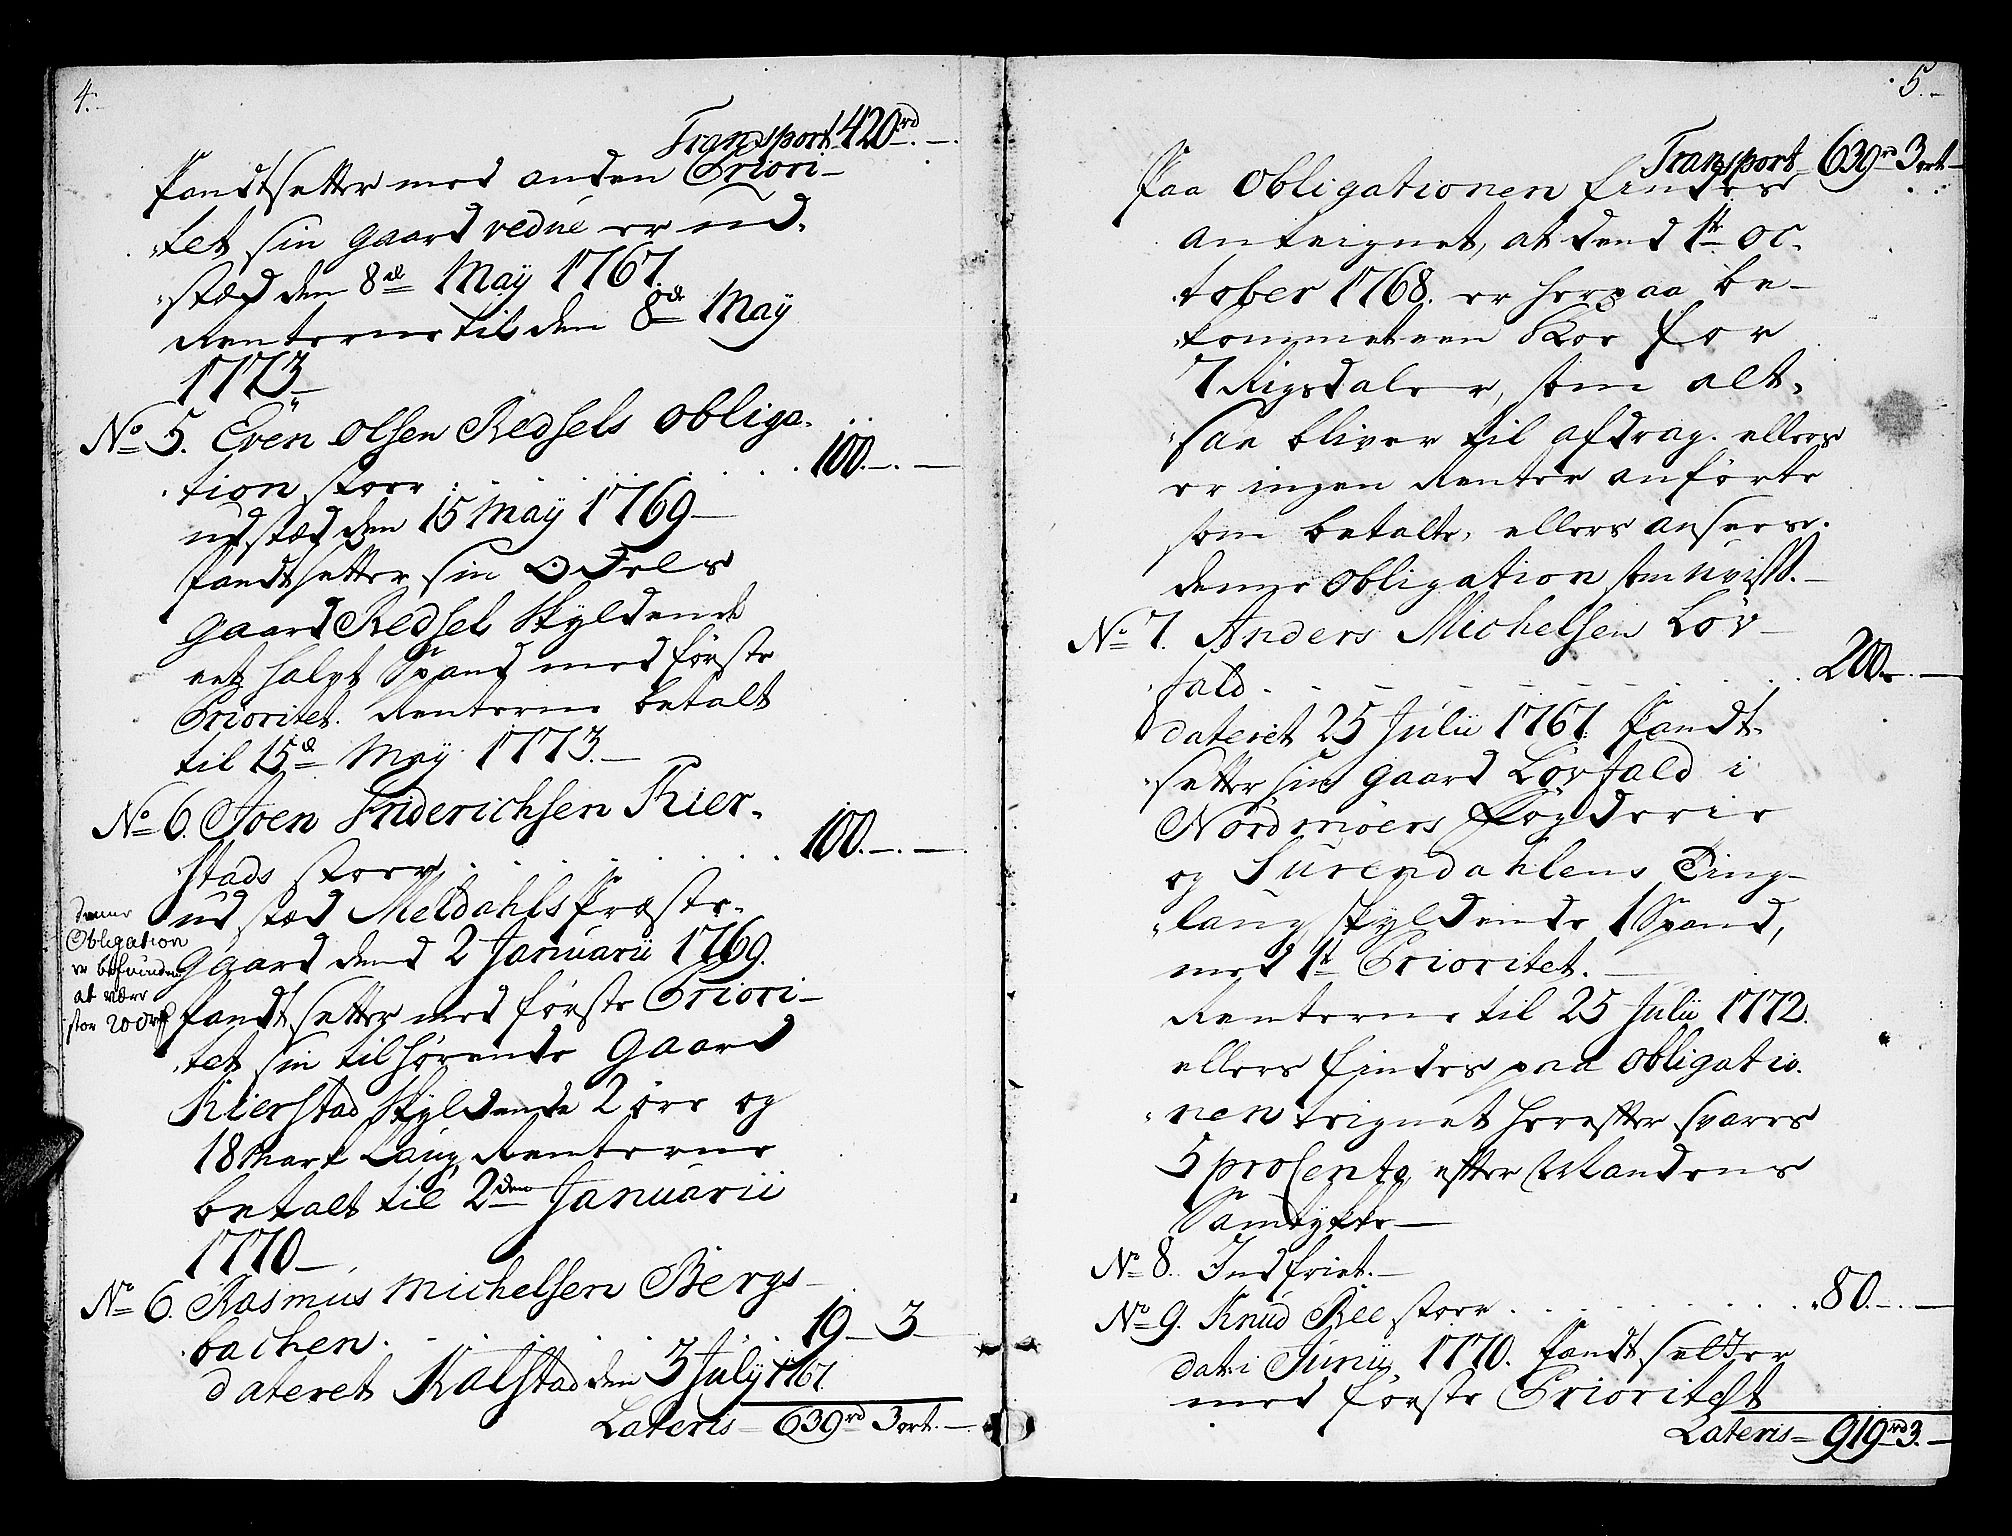 4.
Transport 420rd -. -.
Pandtsetter med anden Priori-
tet sin gaard vedue er ud-
stæd den 8de May 1767.
Renterne til den 8de May
1773-
No 5. Even Olsen Redsels obliga-
tion stoer . . . . . . 100. -. -
udstæd den 15 May 1769-
Pandtsetter sin Odels
gaard Redsel skyldende
eet halft Spand med første
Prioritet. Renterne betalt
til 15de May 1773. -
No 6. Joen Friderichsen Kier-
stads stoer . . . . . . 100. -. -
udstæd Meldahls Præste-
gaard dend 2 Januarii 1769.
Pandtsetter med første Priori-
tet sin tilhørende Gaard
Kierstad skyldende 2 øre og
18 Mark Laug, Renterne
betalt til 2den Januarii
1770-
denne
Obligation
er befunden
at være
stor 200 rd
No 6. Rasmus Michelsen Bergs-
bachen . . . . . . 19 - 3 -
dateret Kalstad den 3 July 1767.
Lateris - 639rd 3 ort. -
5. -
Transport 639rd 3 ort -
Paa Obligationen findes
anteignet, at dend 1te oc-
tober 1768. er herpaa be-
kommet een Koe for
7 Rigsdaler, som alt-
saa bliver til afdrag. ellers
er ingen Renter anførte
som betalte, ellers ansees
denne Obligation som uviss. -
No 7. Anders Michelsen Løv-
fald . . . . . . 200. -. -
dateret 25 Julii 1767. Pandt-
setter sin gaard Løvfald i
Nordmøers Fogderie
og Surendahlens Ting-
laug skyldende 1 Spand,
med 1te Prioritet. -
Renterne til 25 Julii 1772.
ellers findes paa Obligatio-
nen teignet herefter svares
5 procento, efter Mandens
Samtykke -
No 8. Indfriet. -
No 9. Knud Ree stoer . . . . . . 80. -. -
dat: i Junij 1770. Pandtsetter
med første Prioritet
Lateris - 919rd 3. -